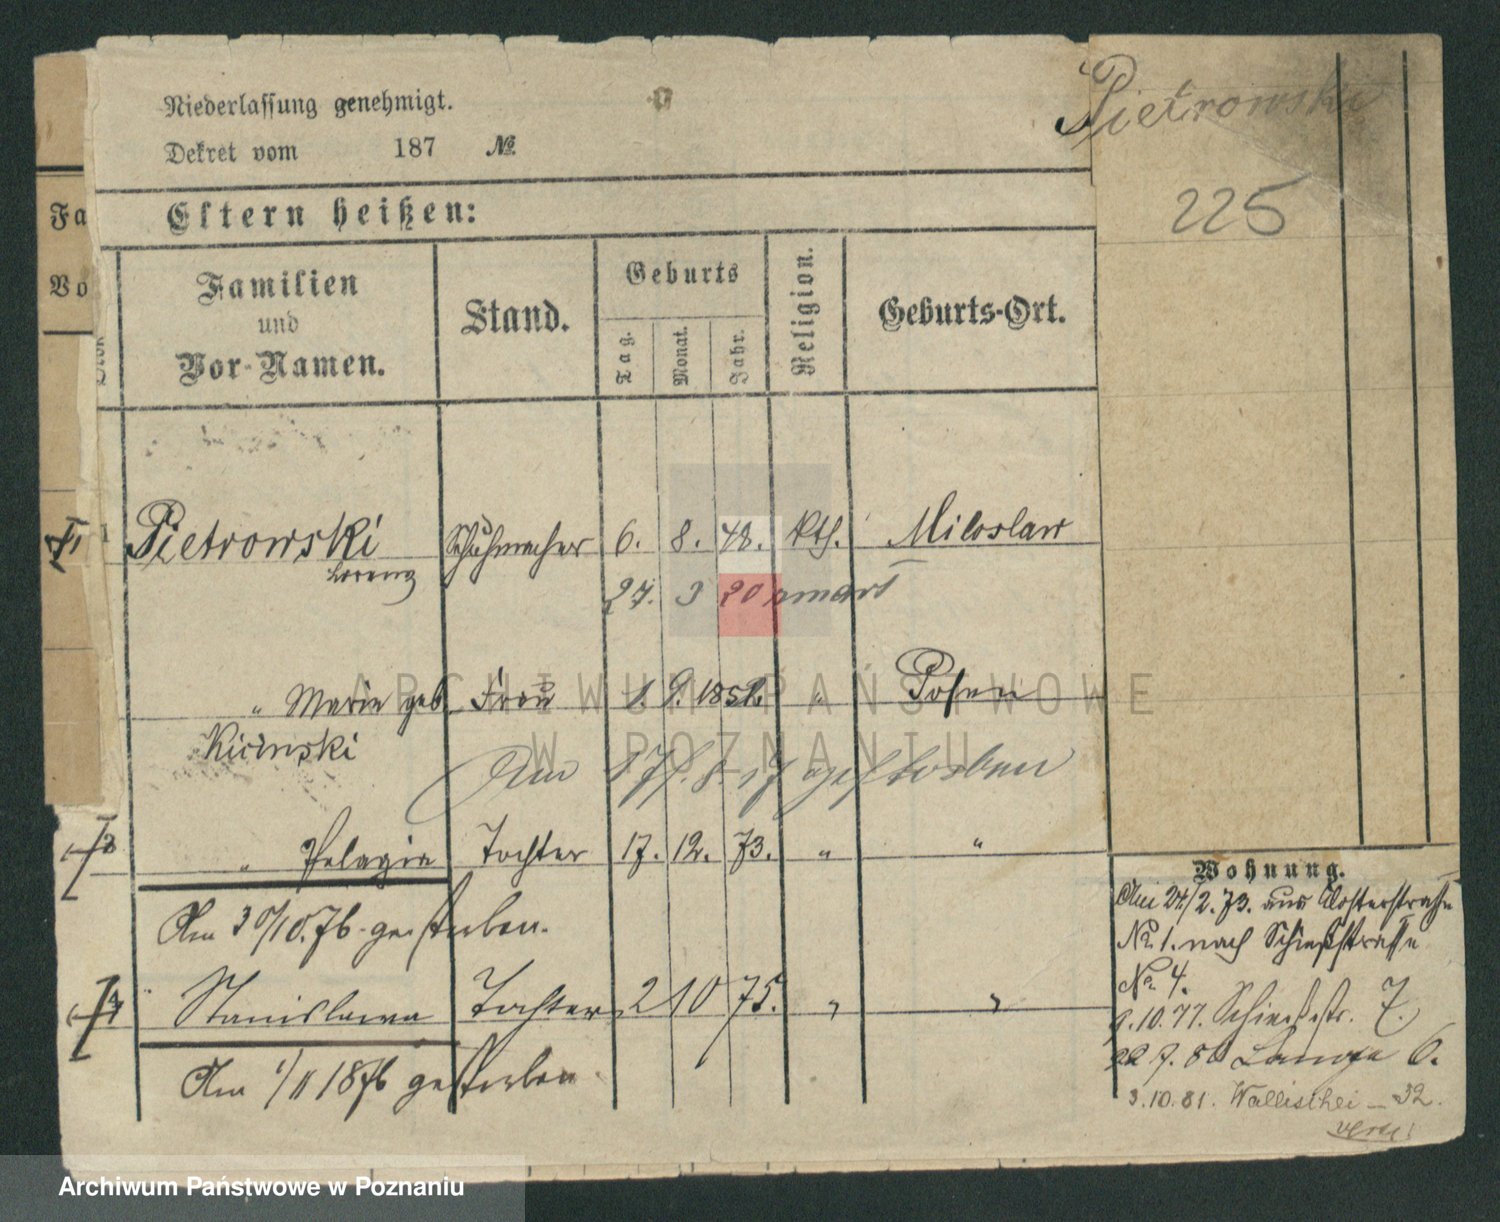 Niederlassung genehmigt.
Dekret vom 187 №
Pietrowski
225
Eltern heißen:
Fa
Vo
Familien und Vor-Namen.
Stand.
Geburts
Tag.
Monat.
Jahr.
Religion.
Geburts-Ort.
Pietrowski Schuhmacher 6. 8. 48. kth. Miloslaw
Lorenz
27. 3 20
" Marie geb. Frau 1. 9. 1852 " Posen
Kicinski
Am 17/. 8. gestorben
" Pelagia Tochter 17. 12. 73. " "
Am 30/10. 76. gestorben.
Stanislawa Tochter 2 10 75. " "
Am 1/11 1876 gestorben
Wohnung.
Am 24/2. 73. aus Klosterstrasse
No. 1. nach Schießstrasse
No. 4.
9.10.77. Schiesstr. 7.
7. 80 Lange 6.
3.10.81. Wallischei - 32.
verte!
ARCHIWUM PAŃSTWOWE
W POZNANIU
Archiwum Państwowe w Poznaniu